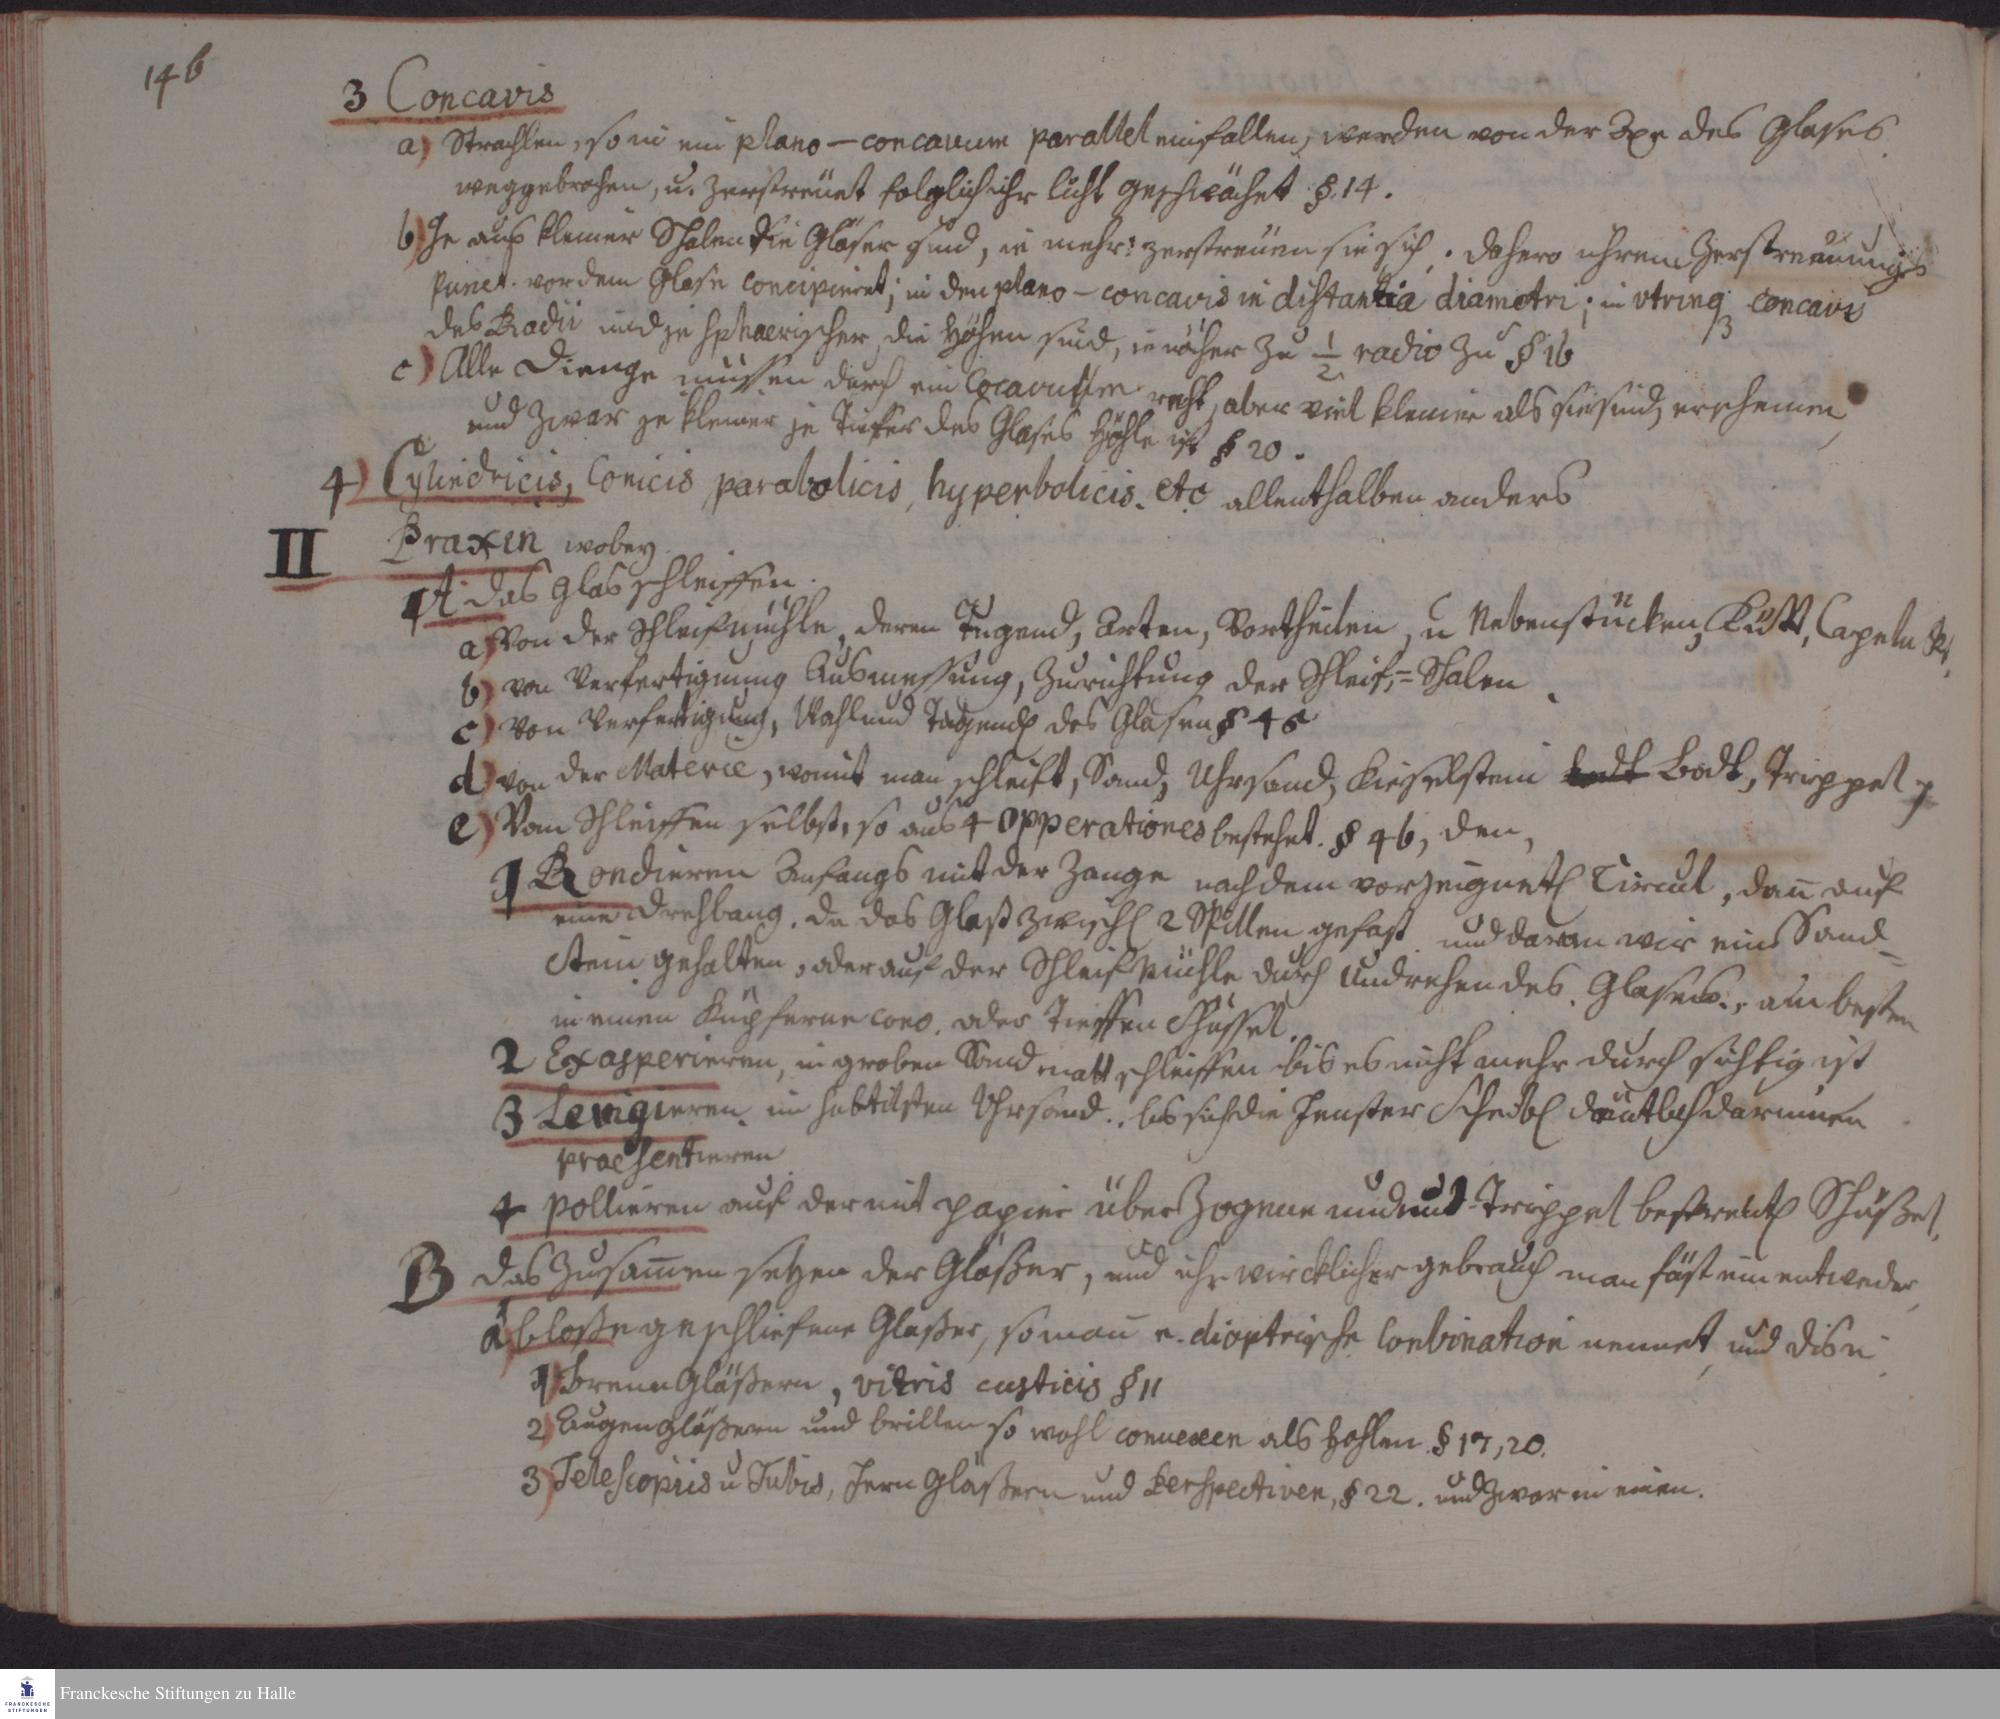 146
3 Concavis
a) Strahlen, so in ein plano-concavum parallel einfallen, werden von der Axe des Glases
weggebrochen, u. zerstreuet folglich ihr licht geschwächet §. 14.
b) Je aus kleiner Schalen die Gläser sind, ie mehr: zerstreuen sie sich. dahero ihren Zerstreuungs
punct. vor dem Glase concipieret; in den plano-concavis in distantia diametri; in utrinq concavis
des Radii und je sphaerischer die Höhen sind, ie näher zu 1/2 radio zu § 16
c) Alle Dienge müssen durch ein Cocavum recht, aber viel kleiner als sie sind, erscheinen
und zwar je kleiner je Tieffer des Glases Höhle ist § 20.
4) Cylindricis, Conicis parabolicis, hyperbolicis. etc allenthalben anders
II Praxin wobey
A das Glas schleiffen.
a) Von der Schleifmühle, deren Tugend, Arten, Vortheilen, u Nebenstücken, Kütt, Capeln
b) von Verfertigung Ausmessung, Zurichtung der Schleif-Schalen
c) von Verfertigung, Wahl und Tugend des Glasen § 45
d) von der Materie, womit man schleift, Sand, Uhrsand, Kieselstein Bodt, Trippel
e) Vom Schleiffen selbst, so aus 4 opperationes bestehet. § 46, den,
1 Rondieren Anfangs mit der Zange nach dem vorzeignet Circul, dan auf
eine Drehbang. da das Glaß zwisch 2 Spillen gefast und daran wir ein Sand-
stein gehalten, oder auf der Schleif Mühle durch Umdrehen des Glases, am besten
in einen Küpferne cono. oder Tieffen Schüssel.
2 Exasperieren, in groben Sand matt schleiffen bis es nicht mehr durchsichtig ist
3 Levigieren im subtilsten Uhrsand. bis sich die Fenster Scheibe deutlich darinnen
praesentieren
4 pollieren auf der mit papier über Zogene und mit Trippel bestreut Schüßel,
B das Zusammen setzen der Gläßer, und ihr wircklicher gebrauch man fäst ein entweder
a) bloße geschliefene Gläßer, so man e. dioptrische Conbination nennet, und dis in
1) Brenn Gläßern, vitris custicis § 11
2) Augen Gläßern und brillen so wohl convexen als Hohlen § 17, 20.
3) Telescopiis u Tubis, Fern Gläßern und Perspectiven, § 22. und zwar in einen.
Franckesche Stiftungen zu Halle
FRANCKESCHE
STIFTUNGEN